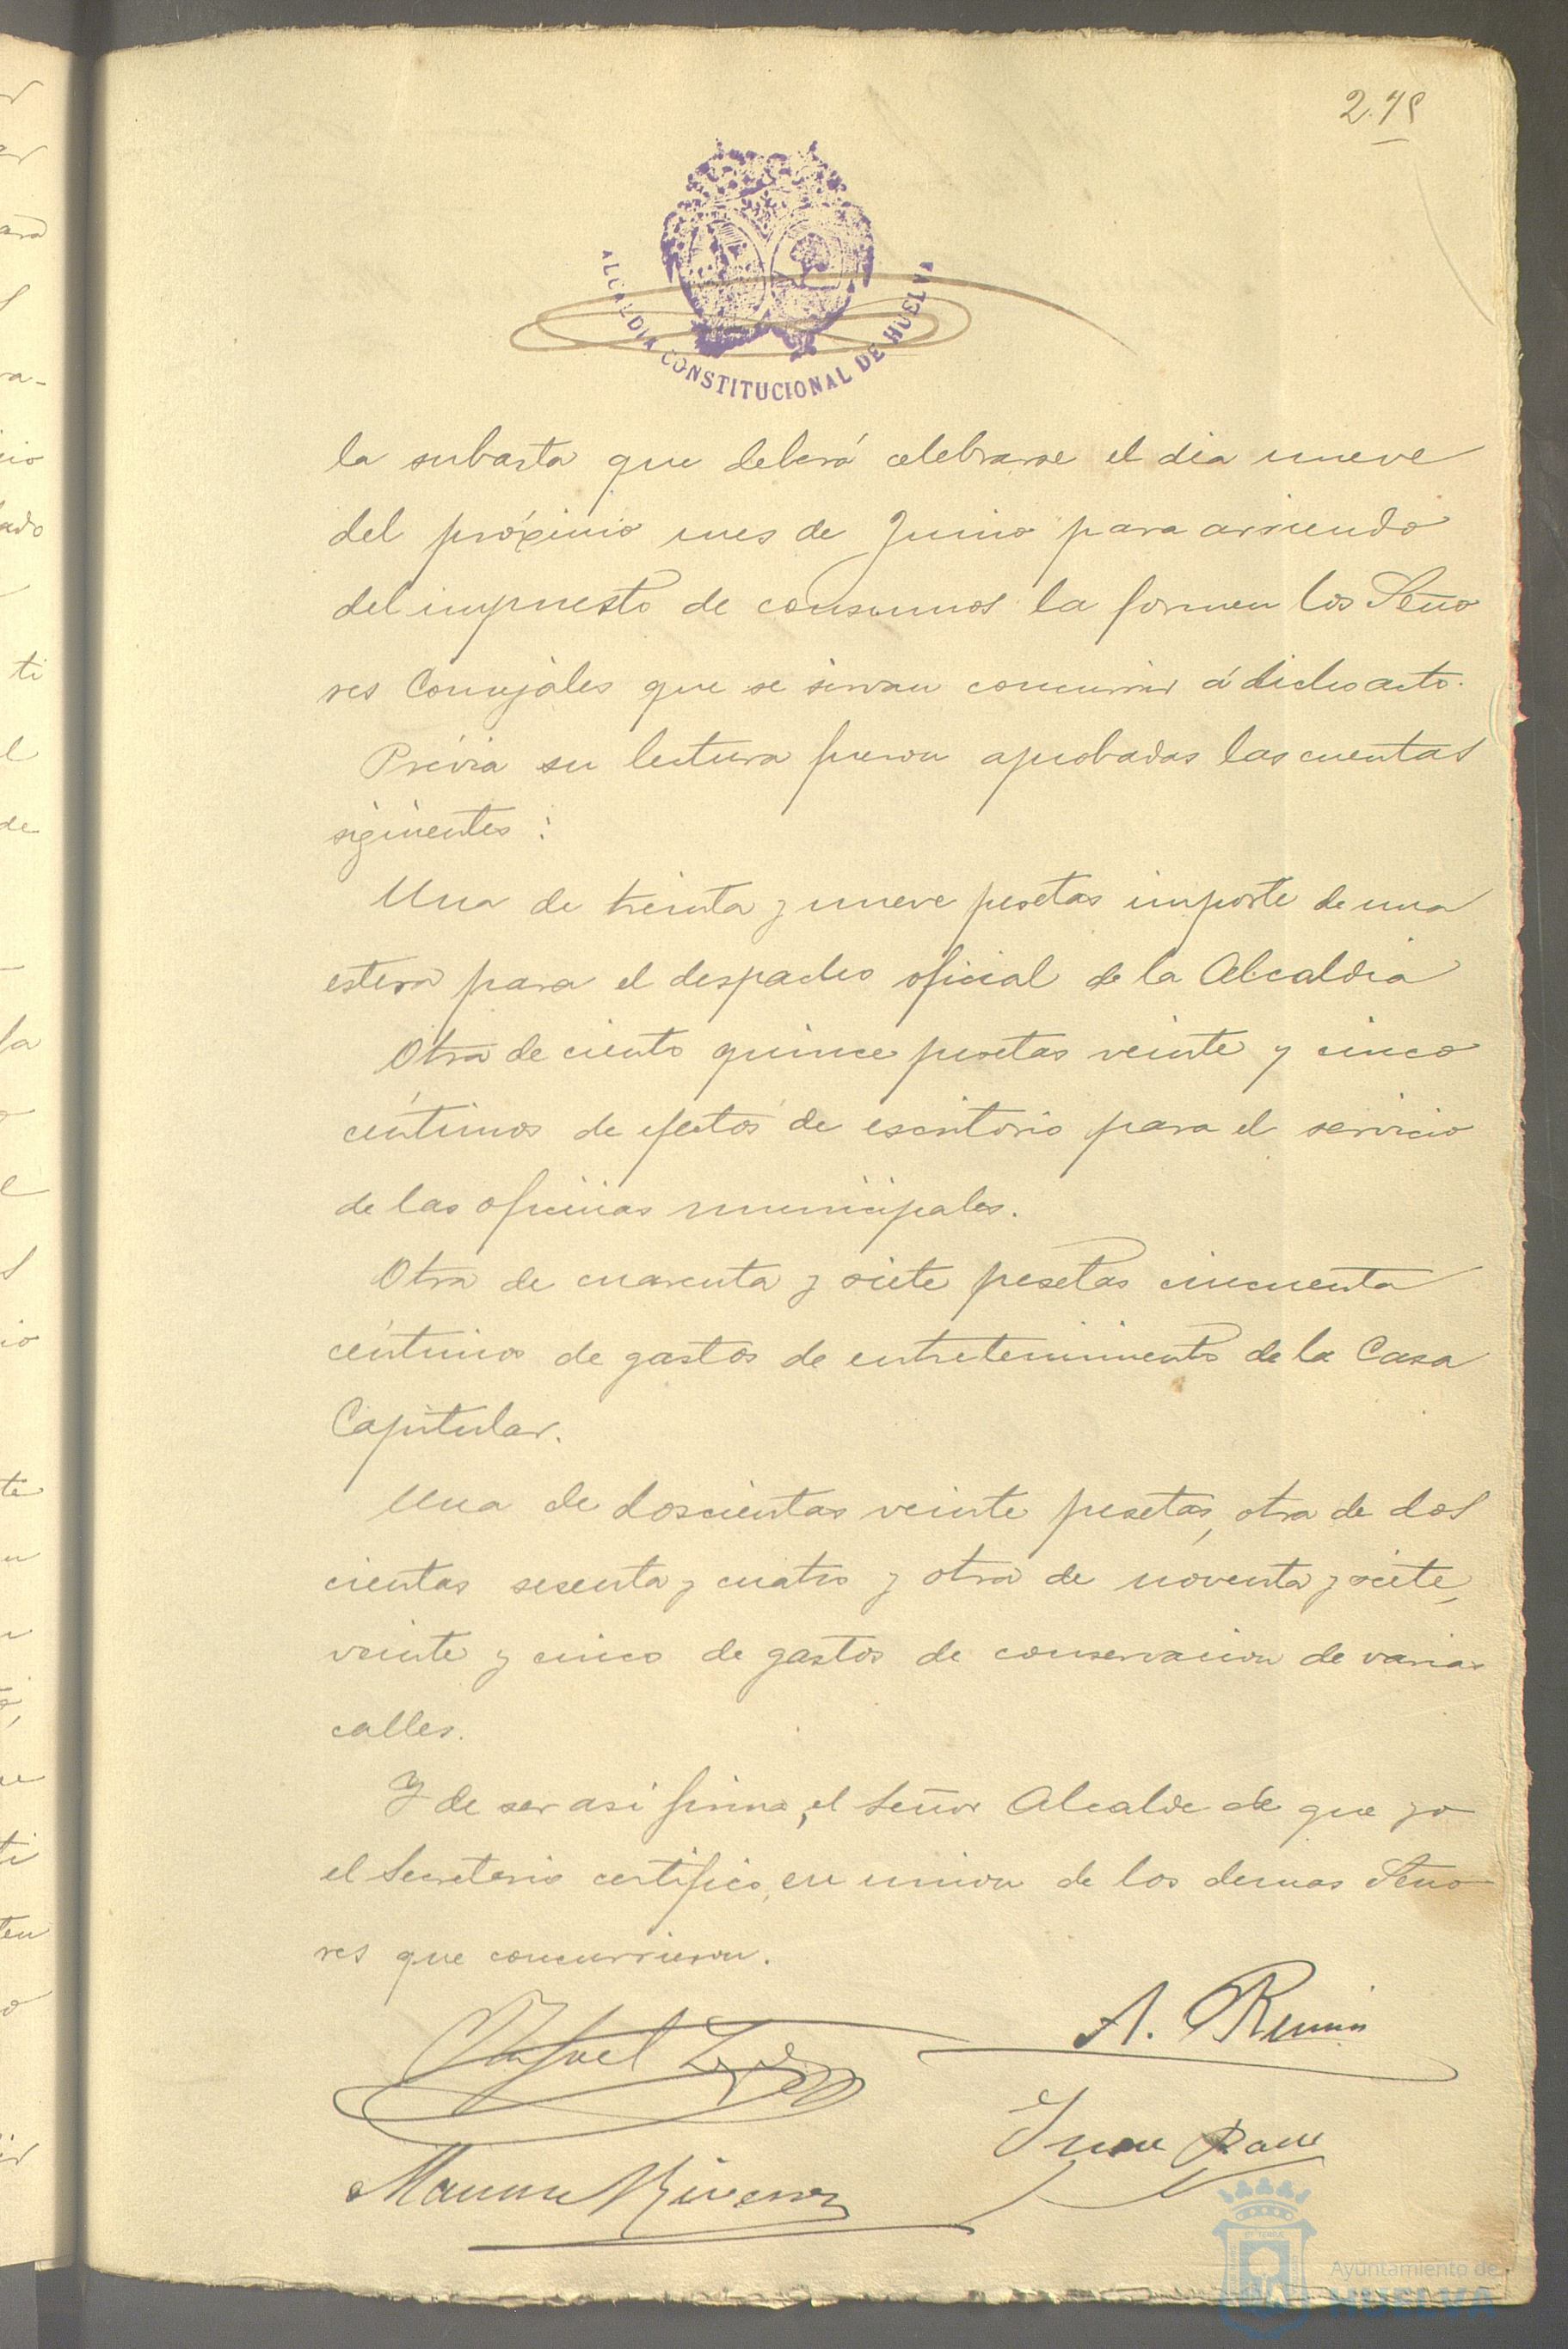 ALCALDIA CONSTITUCIONAL DE HUELVA
la subasta que deberá celebrarse el dia nueve
del próximo mes de Junio para arriendo
del impuesto de consumos la formen los Seño
res Concejales que se sirvan concurrir á dicho acto.
Prévia su lectura fueron aprobadas las cuentas
siguientes:
Una de treinta y nueve pesetas importe de una
estera para el despacho oficial de la Alcaldia
Otra de ciento quince pesetas veinte y cinco
céntimos de efectos de escritorio para el servicio
de las oficinas municipales.
Otra de cuarenta y siete pesetas cincuenta
céntimos de gastos de entretenimiento de la Casa
Capitular.
Una de doscientas veinte pesetas, otra de dos
cientas sesenta y cuatro y otra de noventa y siete,
veinte y cinco de gastos de conservacion de varias
calles.
Y de ser asi firma, el Señor Alcalde de que yo
el Secretario certifico, en union de los demas Seño
res que concurrieron.
A.
Juan
Manuel
Ayuntamiento de
HUELVA